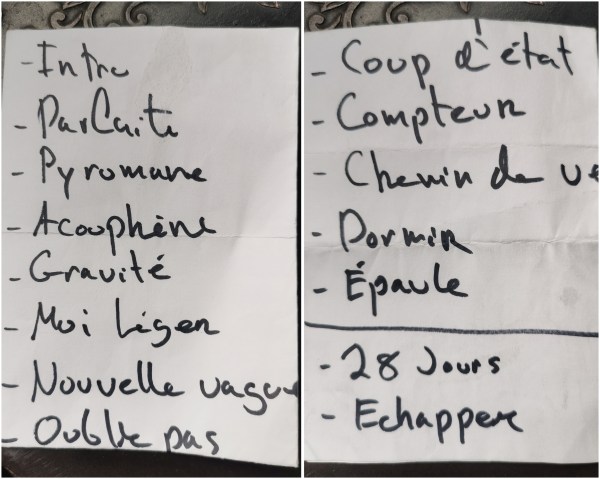 - Intro
- Parfaite
- Pyromane
- Acouphène
- Gravité
- Moi Léger
- Nouvelle vague
- Oublie pas
- Coup d'état
- Compteur
- Chemin de ve
- Dormir
- Épaule
- 28 Jours
- Echapper